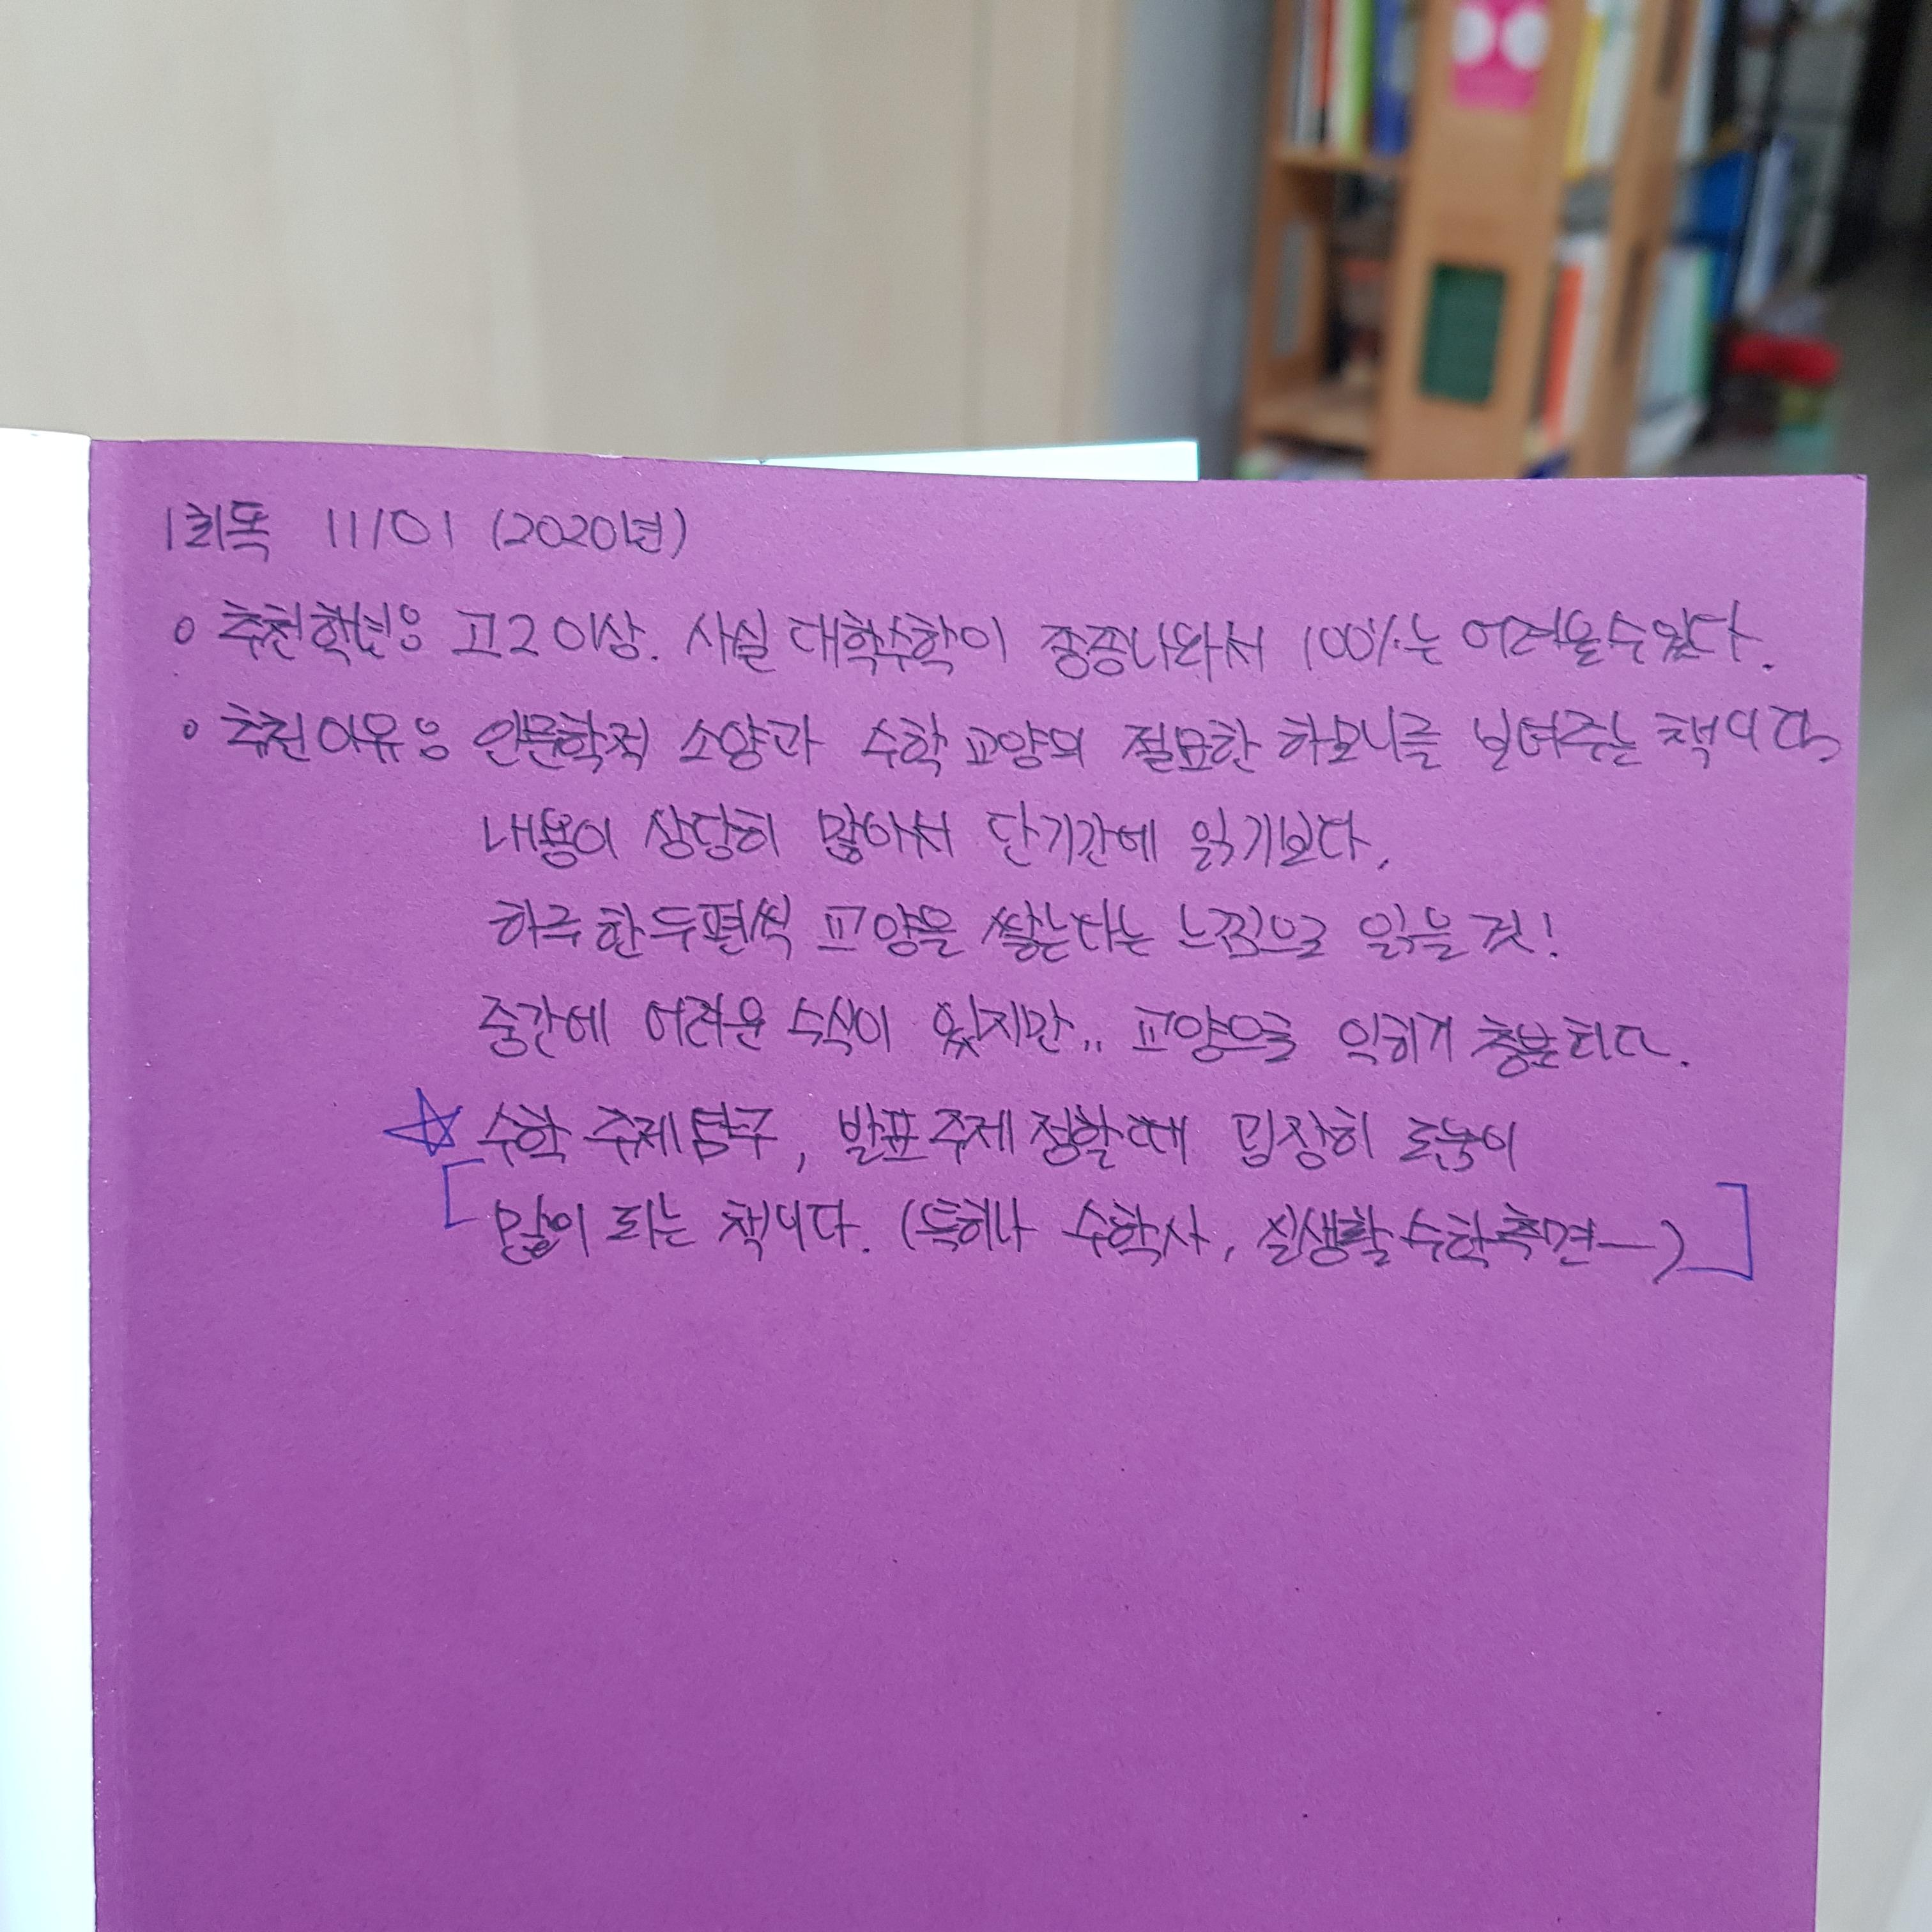 1회독 11/01 (2020년)
○ 추천학년: 고2 이상. 사실 대학수학이 종종나와서 100%는 어려울수있다.
○ 추천이유: 인문학적 소양과 수학 교양의 절묘한 하모니를 보여주는 책이다
내용이 상당히 많아서 단기간에 읽기보다,
하루 한두편씩 교양을 쌓는다는 느낌으로 읽을 것!
중간에 어려운 수식이 있지만.. 교양으로 익히기 충분하다.
☆ 수학 주제탐구, 발표주제 정할때 굉장히 도움이
[많이 되는 책이다. (특히나 수학사, 실생활 수학측면—)]